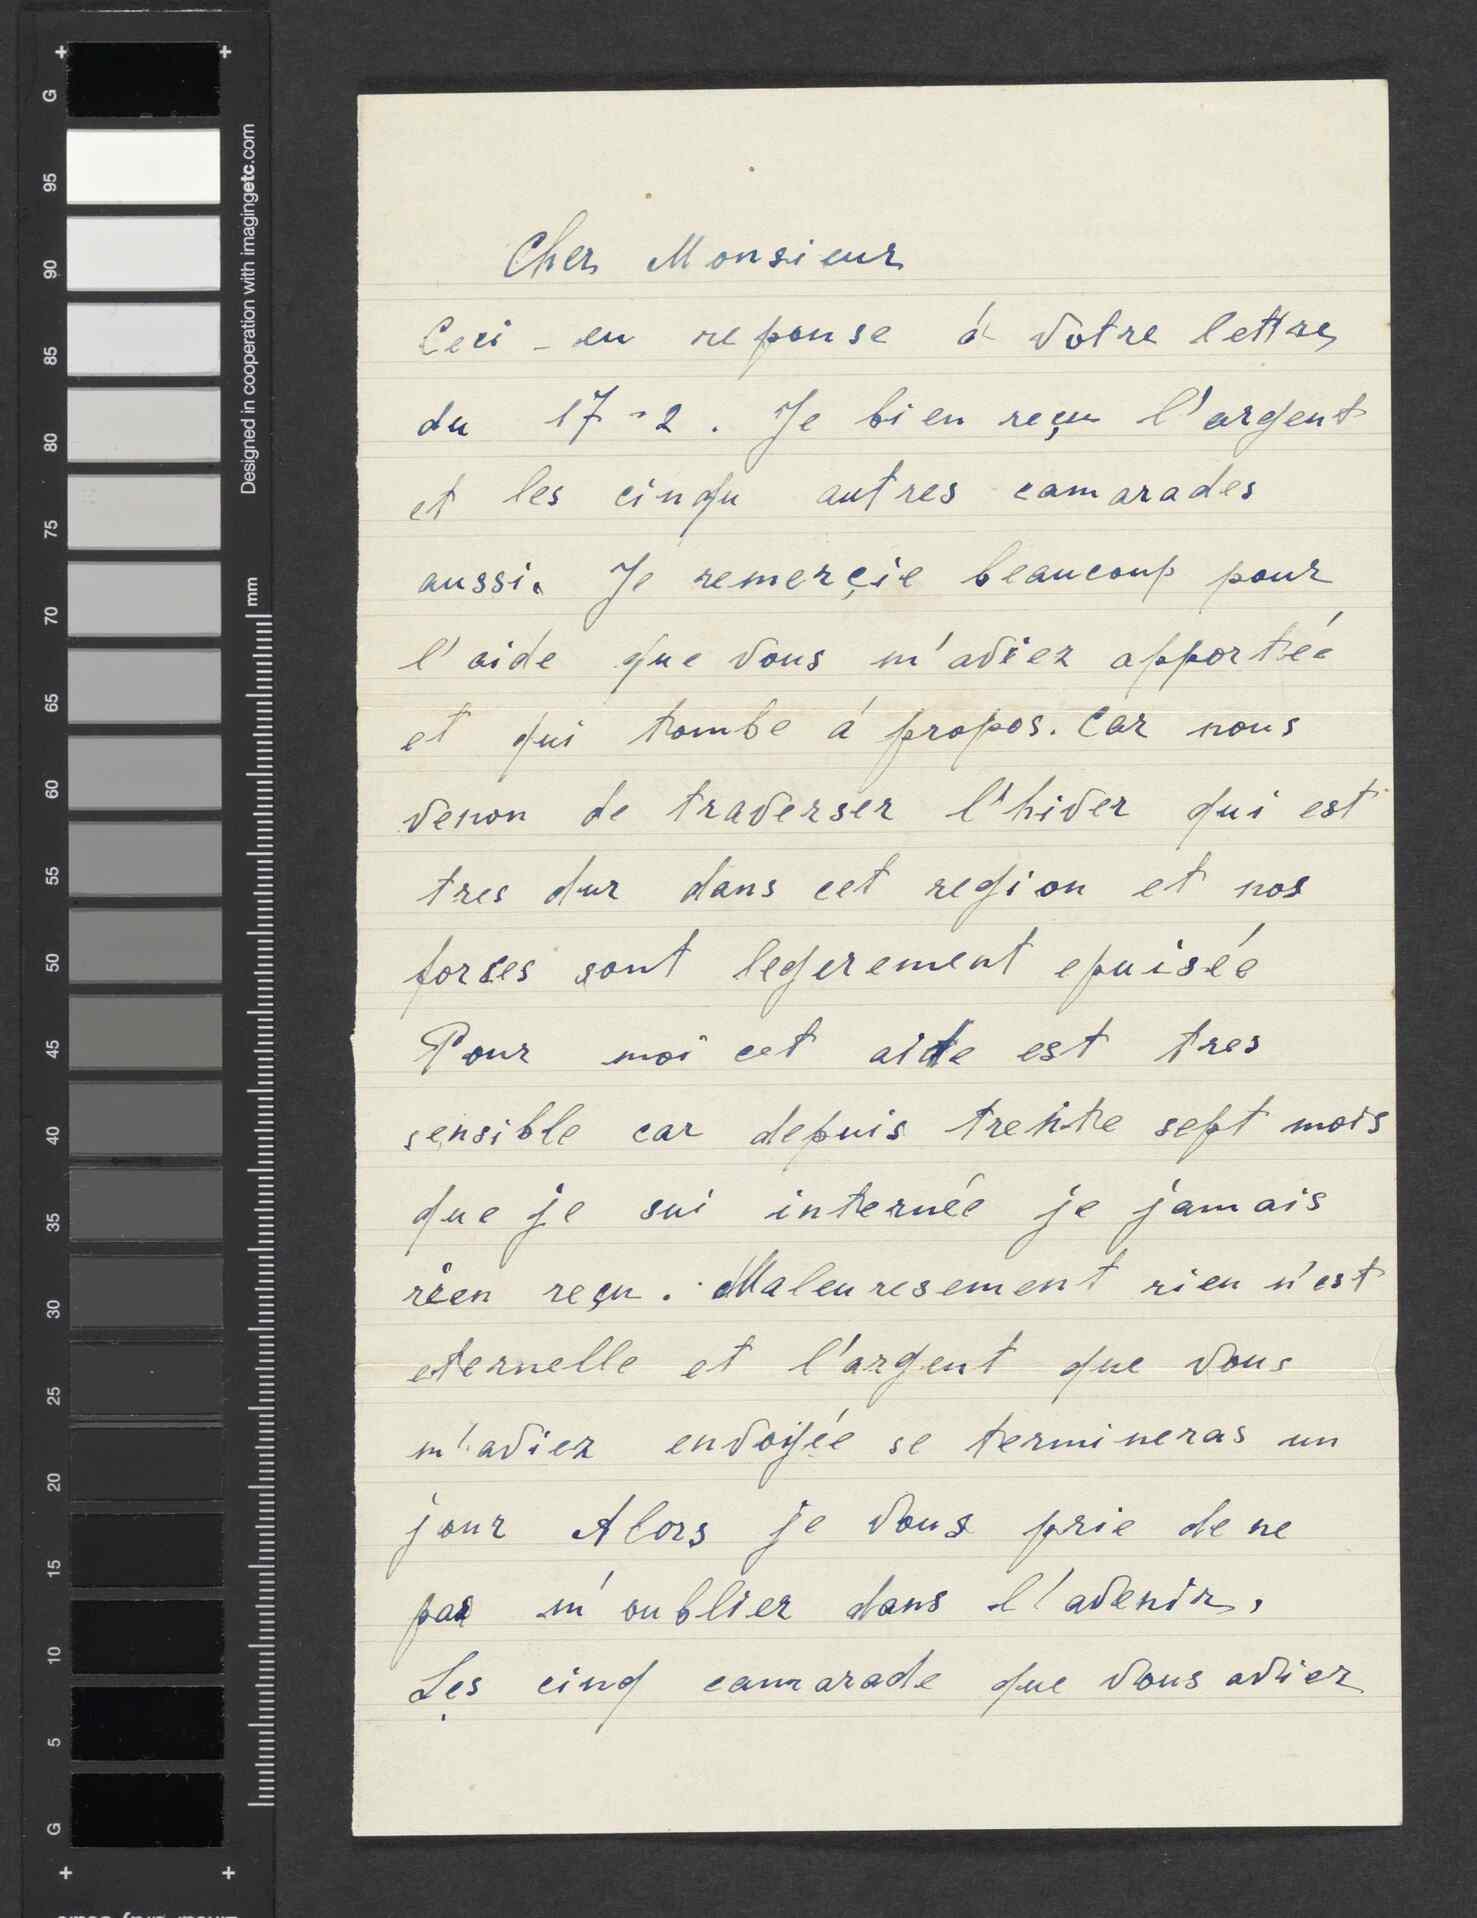 Cher Monsieur
Ceci - en reponse á votre lettre
du 17-2. Je bien reçu l'argent
et les cinqu autres camarades
aussi. Je remerçie beaucoup pour
l'aide que vous m'aviez apportée
et qui tombe á propos. Car nous
venon de traverser l'hiver qui est
tres dur dans cet region et nos
forses sont legerement epuisée
Pour moi cet aide est tres
sensible car depuis trente sept mois
que je sui internée je jamais
rien reçu. Maleuresement rien n'est
eternelle et l'argent que vous
m'aviez envoyée se termineras un
jour Alors je vous prie de ne
pas m'oublier dans l'avenir,
Les cinq camarade que vous aviez
G
95
90
85
80
75
70
65
60
55
50
45
40
35
30
25
20
15
10
5
G
mm
Designed in cooperation with imagingetc.com